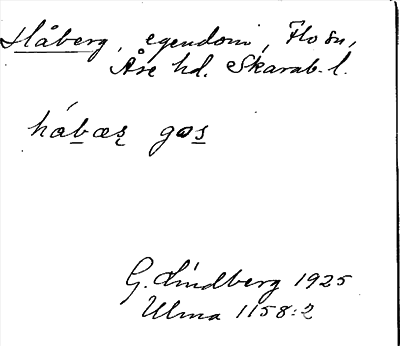 Håberg, egendom, Flo sn,
Åse hd. Skarab. l.
hábær gos
G. Lindberg 1925
Ulma 1158:2